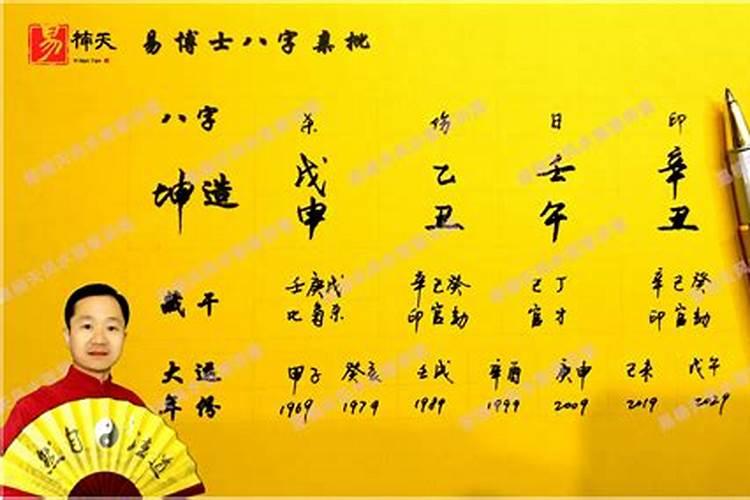 易楠天 易博士八字集批
八字 杀 伤 日 印
坤造 戊 乙 壬 辛
申 丑 午 丑
藏干 壬庚戊 辛己癸 己丁 辛己癸
比枭杀 印官劫 官才 印官劫
大运 甲子 癸亥 壬戌 辛酉 庚申 己未 戊午
年份 1969 1979 1989 1999 2009 2019 2029
然自法道